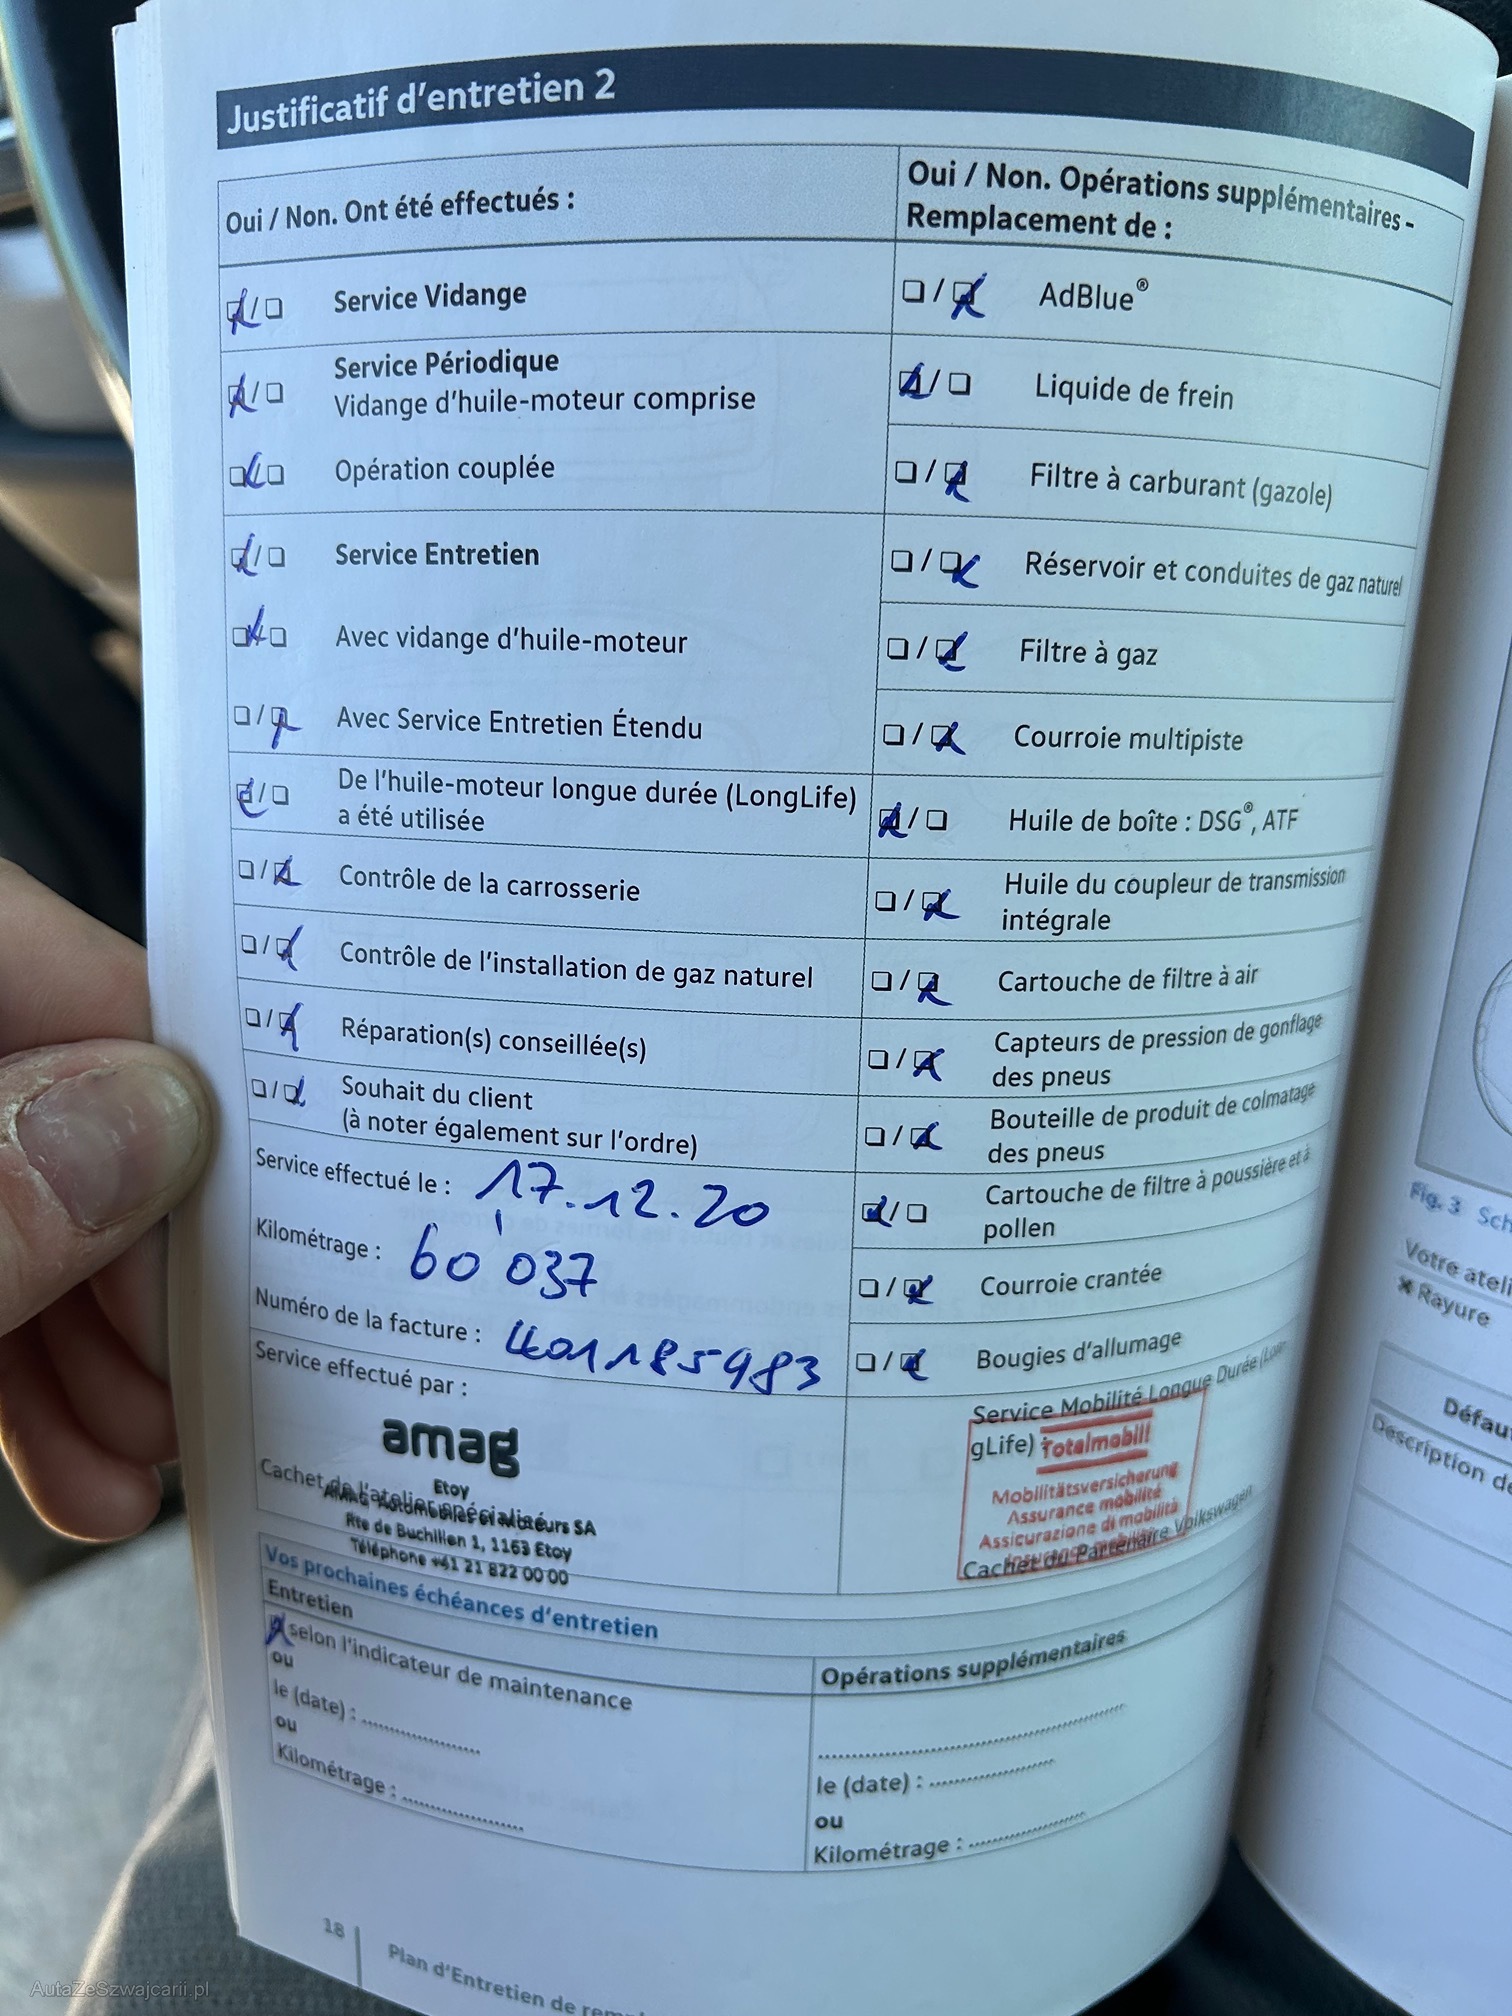 Justificatif d'entretien 2
Oui / Non. Ont été effectués :
Service Vidange
Service Périodique
Vidange d'huile-moteur comprise
Opération couplée
Service Entretien
Avec vidange d'huile-moteur
Avec Service Entretien Étendu
De l'huile-moteur longue durée (LongLife)
a été utilisée
Contrôle de la carrosserie
Contrôle de l'installation de gaz naturel
Réparation(s) conseillée(s)
Souhait du client
(à noter également sur l'ordre)
Service effectué le : 17.12.20
Kilométrage : 60'037
Numéro de la facture : 4011185983
Service effectué par :
amag
Etoy
Cachet de l'atelier spécialisé
AMAG Automobiles et Moteurs SA
Rte de Buchillen 1, 1163 Etoy
Téléphone +41 21 822 00 00
Oui / Non. Opérations supplémentaires -
Remplacement de :
AdBlue®
Liquide de frein
Filtre à carburant (gazole)
Réservoir et conduites de gaz naturel
Filtre à gaz
Courroie multipiste
Huile de boîte : DSG®, ATF
Huile du coupleur de transmission
intégrale
Cartouche de filtre à air
Capteurs de pression de gonflage
des pneus
Bouteille de produit de colmatage
des pneus
Cartouche de filtre à poussière et à
pollen
Courroie crantée
Bougies d'allumage
Service Mobilité Longue Durée (Lon-
gLife) :
Totalmobil!
Mobilitätsversicherung
Assurance mobilité
Assicurazione di mobilità
Cachet du Partenaire Volkswagen
Vos prochaines échéances d'entretien
Entretien
selon l'indicateur de maintenance
ou
le (date) :
ou
Kilométrage :
Opérations supplémentaires
le (date) :
ou
Kilométrage :
18
Plan d'Entretien de
Fig. 3 Sch
Votre ateli
✖ Rayure
Défau
Description de
AutaZeSzwajcarii.pl